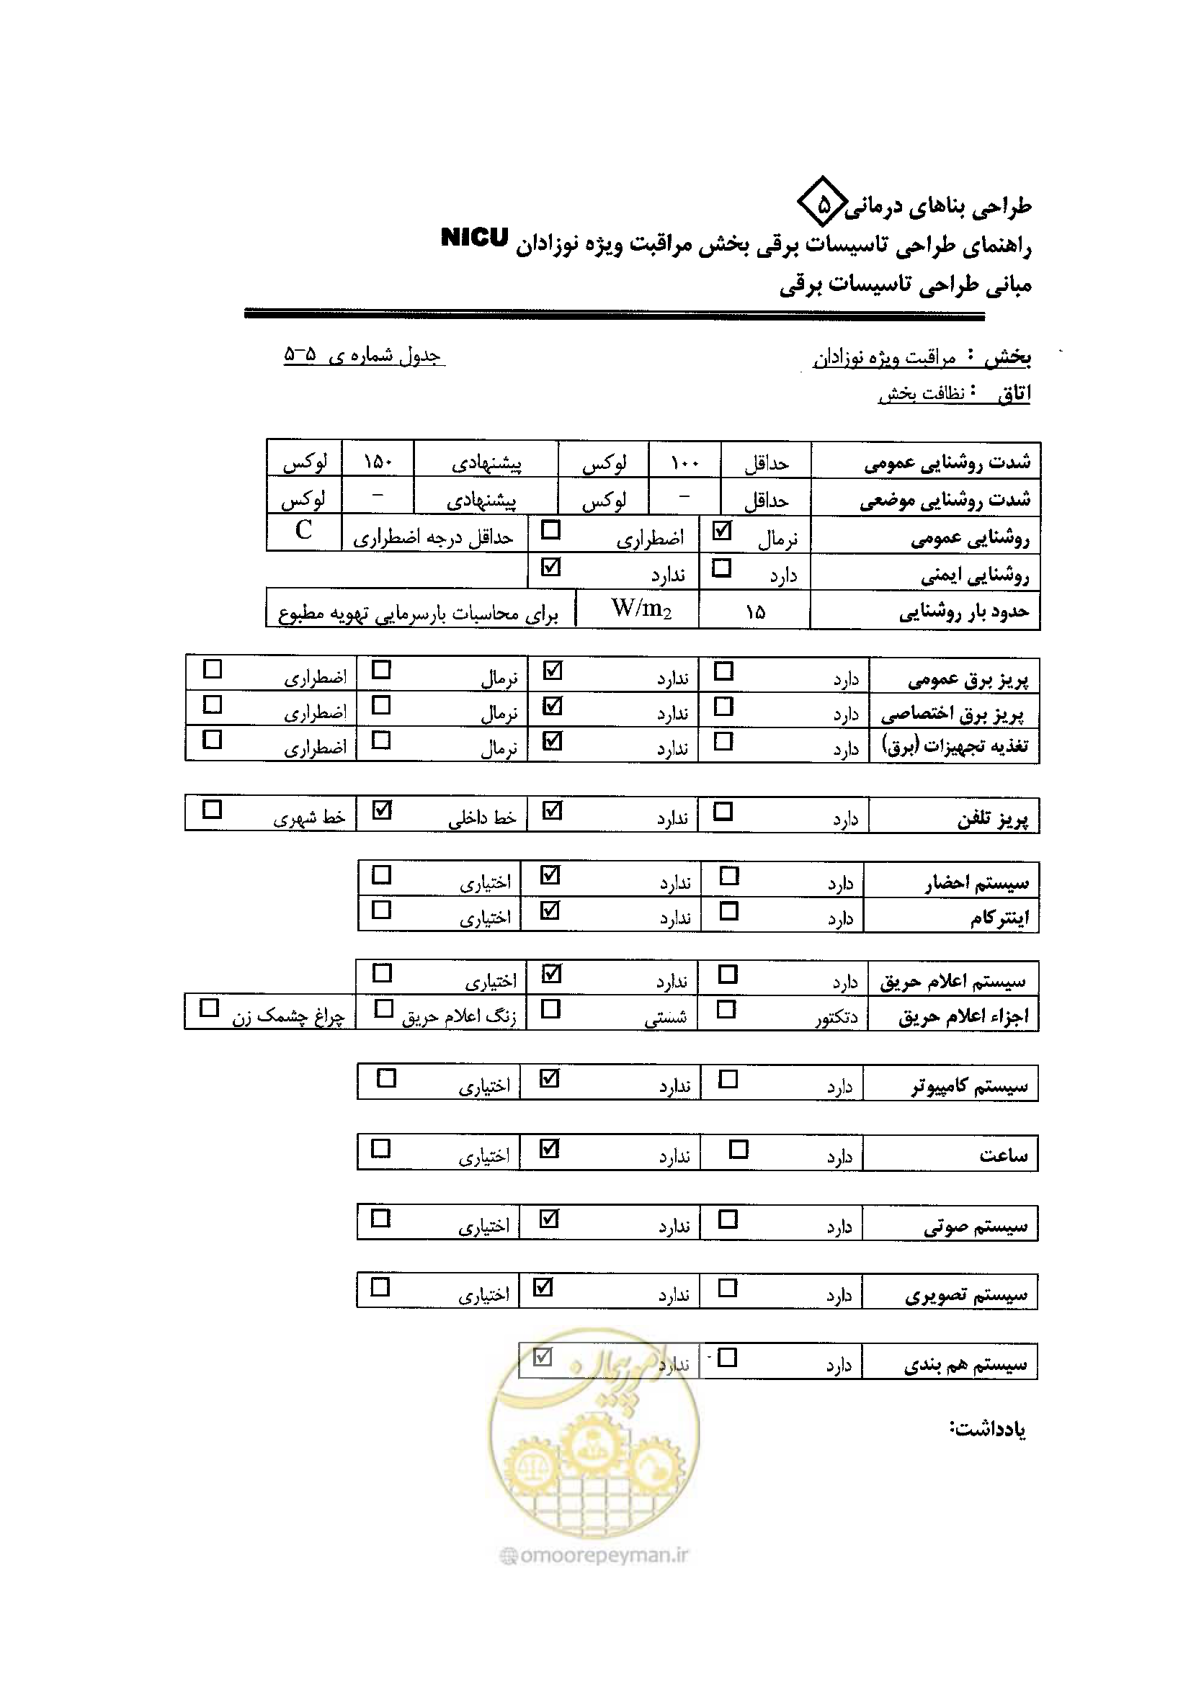 طراحی بناهای درمانی ۵
راهنمای طراحی تاسیسات برقی بخش مراقبت ویژه نوزادان NICU
مبانی طراحی تاسیسات برقی
بخش : مراقبت ویژه نوزادان جدول شماره ی ۵-۵
اتاق : نظافت بخش
شدت روشنایی عمومی حداقل ۱۰۰ لوکس پیشنهادی ۱۵۰ لوکس
شدت روشنایی موضعی حداقل – لوکس پیشنهادی – لوکس
روشنایی عمومی نرمال ☑ اضطراری ☐ حداقل درجه اضطراری C
روشنایی ایمنی دارد ☐ ندارد ☑
حدود بار روشنایی ۱۵ W/m2 برای محاسبات بارسرمایی تهویه مطبوع
پریز برق عمومی دارد ☐ ندارد ☑ نرمال ☐ اضطراری ☐
پریز برق اختصاصی دارد ☐ ندارد ☑ نرمال ☐ اضطراری ☐
تغذیه تجهیزات (برق) دارد ☐ ندارد ☑ نرمال ☐ اضطراری ☐
پریز تلفن دارد ☐ ندارد ☑ خط داخلی ☑ خط شهری ☐
سیستم احضار دارد ☐ ندارد ☑ اختیاری ☐
اینترکام دارد ☐ ندارد ☑ اختیاری ☐
سیستم اعلام حریق دارد ☐ ندارد ☑ اختیاری ☐
اجزاء اعلام حریق دتکتور ☐ شستی ☐ زنگ اعلام حریق ☐ چراغ چشمک زن ☐
سیستم کامپیوتر دارد ☐ ندارد ☑ اختیاری ☐
ساعت دارد ☐ ندارد ☑ اختیاری ☐
سیستم صوتی دارد ☐ ندارد ☑ اختیاری ☐
سیستم تصویری دارد ☐ ندارد ☑ اختیاری ☐
سیستم هم بندی دارد ☐ ندارد ☑
امور پیمان
یادداشت:
@omoorepeyman.ir